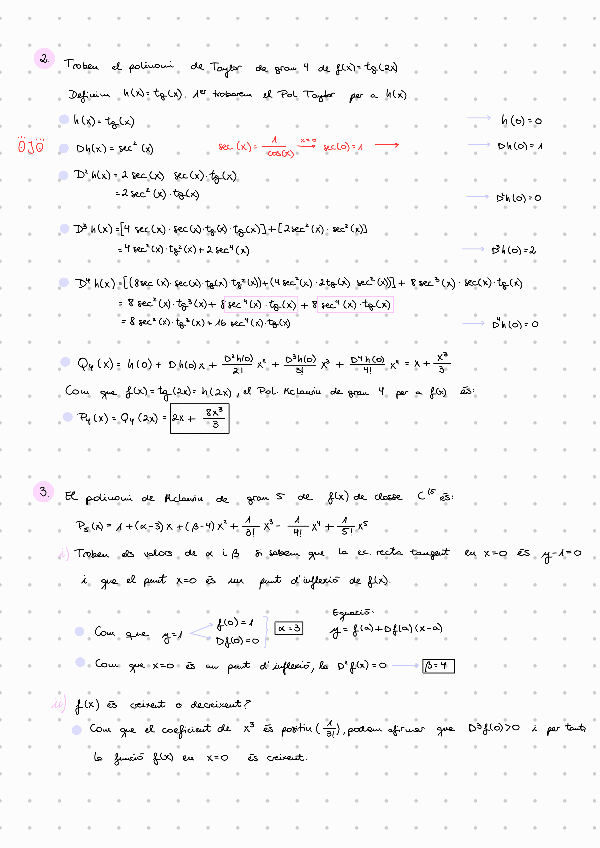 2. Trobeu el polinomi de Taylor de grau 4 de f(x)=tg(2x)
Definim h(x)=tg(x). 1er trobarem el Pol Taylor per a h(x)
h(x)=tg(x) h(0)=0
ÖJÖ Dh(x)=sec²(x) sec(x)= 1/cos(x) →(x=0) sec(0)=1 → Dh(0)=1
D²h(x)=2 sec(x) sec(x)·tg(x)
=2sec²(x)·tg(x) D²h(0)=0
D³h(x)=[4 sec(x)·sec(x)·tg(x)·tg(x)]+[2sec²(x)·sec²(x)]
=4sec²(x)·tg²(x)+2sec⁴(x) D³h(0)=2
D⁴h(x)=[(8sec(x)·sec(x)·tg(x)·tg²(x))+(4sec²(x)·2tg(x)·sec²(x))]+8sec³(x)·sec(x)·tg(x)
= 8sec²(x)·tg³(x)+8sec⁴(x)·tg(x)+8sec⁴(x)·tg(x)
= 8sec²(x)·tg³(x)+16sec⁴(x)·tg(x) D⁴h(0)=0
Q₄(x)= h(0)+Dh(0)x+ D²h(0)/2! x²+ D³h(0)/3! x³+ D⁴h(0)/4! x⁴ = x+ x³/3
Com que f(x)=tg(2x)=h(2x), el Pol. McLaurin de grau 4 per a f(x) és:
P₄(x)=Q₄(2x)= 2x+ 8x³/3
3. El polinomi de McLaurin de grau 5 de f(x) de classe C¹⁵ és:
P₅(x)=1+(α-3)x+(β-4)x²+ 1/3! x³- 1/4! x⁴+ 1/5! x⁵
i) Trobeu els valors de α i β si sabem que la ec. recta tangent en x=0 és y-1=0
i que el punt x=0 és un punt d'inflexió de f(x).
Equació:
Com que y=1 f(0)=1 Df(0)=0 α=3 y=f(a)+Df(a)(x-a)
Com que x=0 és un punt d'inflexió, la D²f(x)=0 β=4
ii) f(x) és creixent o decreixent?
Com que el coeficient de x³ és positiu (1/3!), podem afirmar que D³f(0)>0 i per tant,
la funció f(x) en x=0 és creixent.